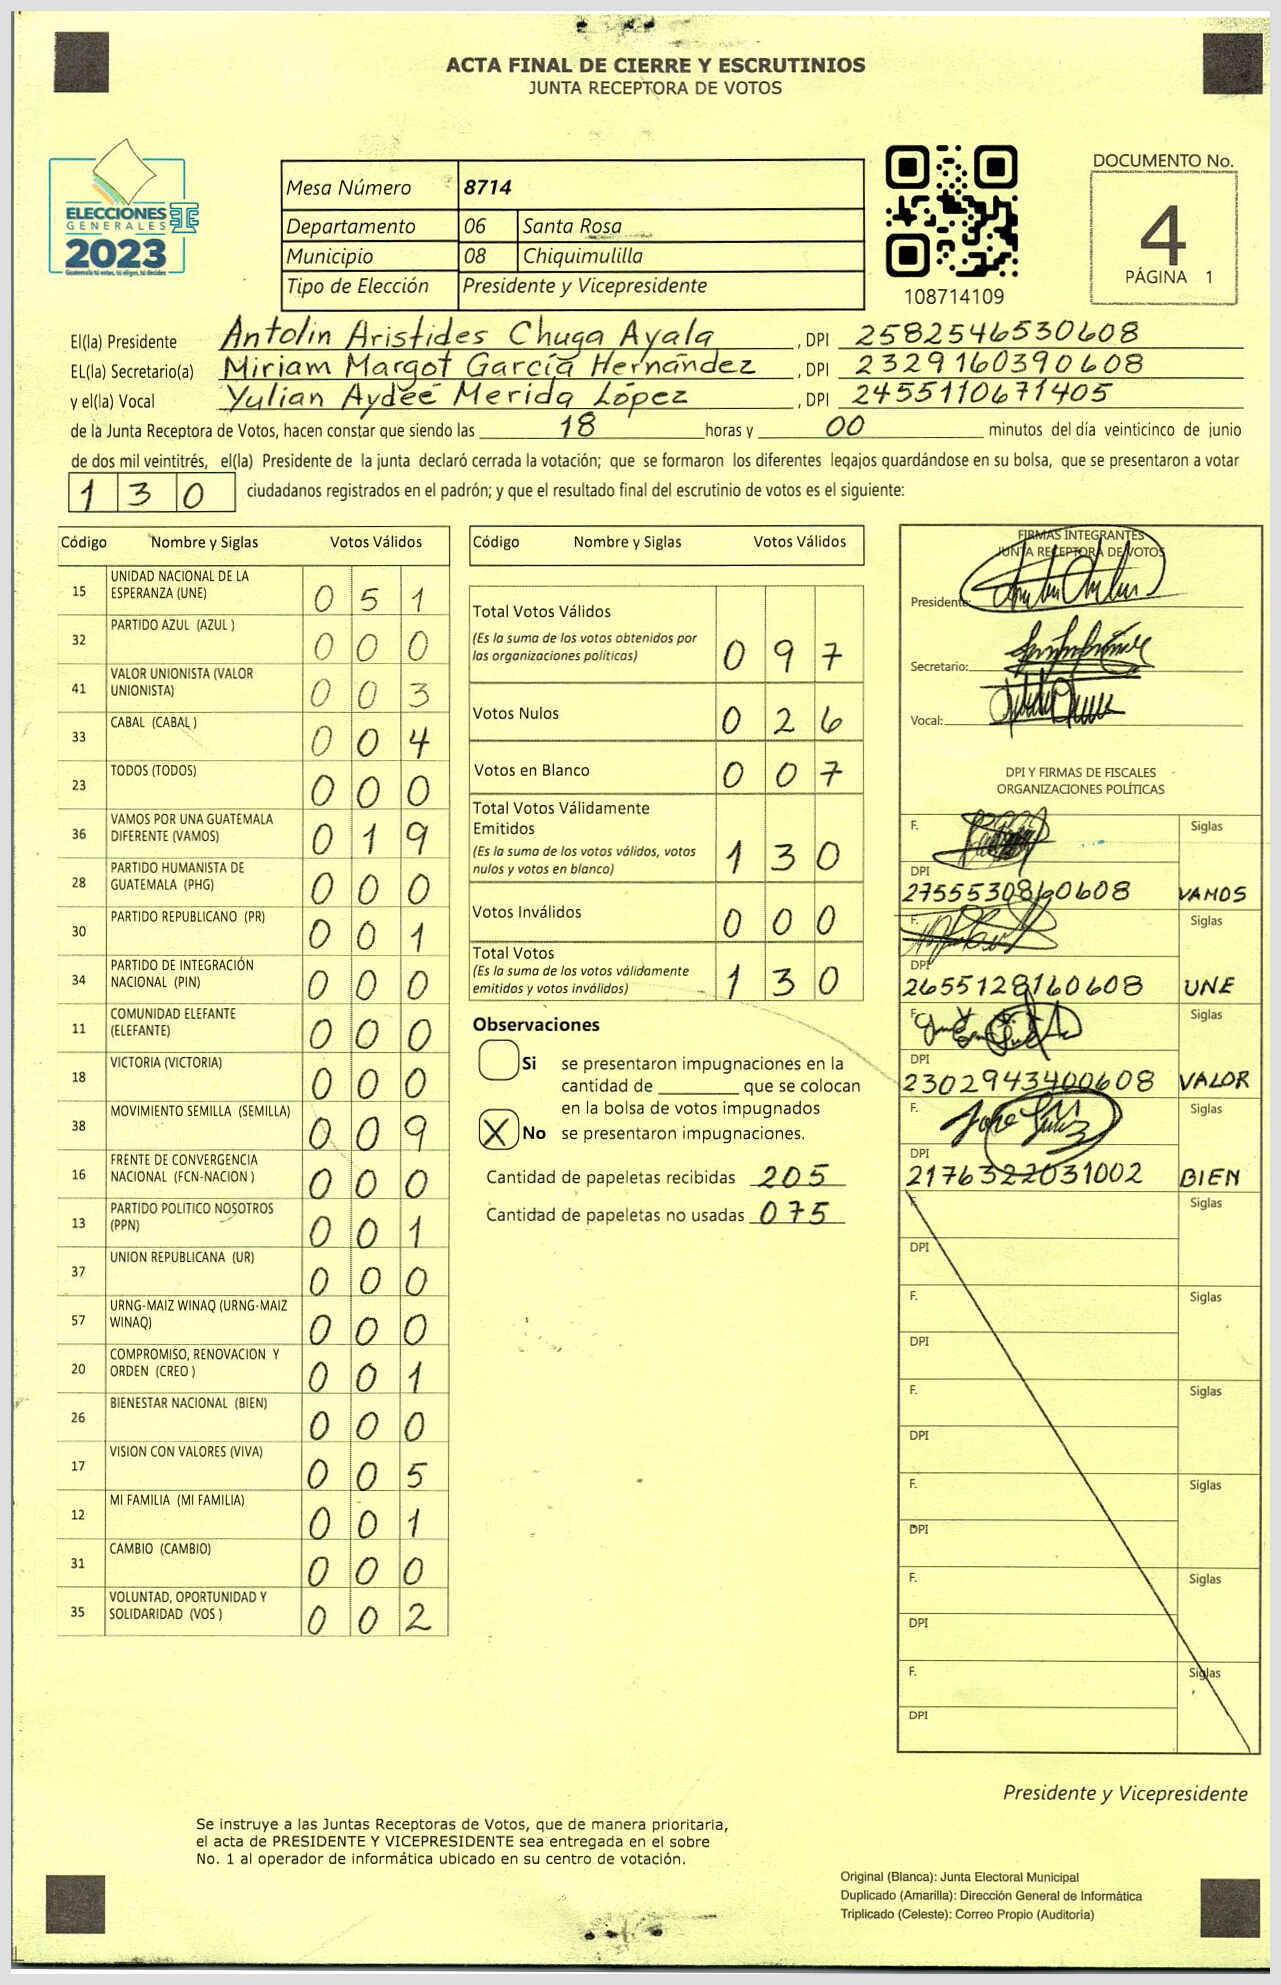 ACTA FINAL DE CIERRE Y ESCRUTINIOS
JUNTA RECEPTORA DE VOTOS
ELECCIONES
GENERALES
2023
Guatemala tú votas, tú eliges, tú decides
Mesa Número 8714
Departamento 06 Santa Rosa
Municipio 08 Chiquimulilla
Tipo de Elección Presidente y Vicepresidente
108714109
DOCUMENTO No.
4
PÁGINA 1
El(la) Presidente Antolin Aristides Chuga Ayala, DPI 2582546530608
EL(la) Secretario(a) Miriam Margot García Hernández, DPI 2329160390608
y el(la) Vocal Yulian Aydeé Merida López, DPI 2455110671405
de la Junta Receptora de Votos, hacen constar que siendo las 18 horas y 00 minutos del día veinticinco de junio
de dos mil veintitrés, el(la) Presidente de la junta declaró cerrada la votación; que se formaron los diferentes legajos guardándose en su bolsa, que se presentaron a votar
130 ciudadanos registrados en el padrón; y que el resultado final del escrutinio de votos es el siguiente:
Código Nombre y Siglas Votos Válidos
15 UNIDAD NACIONAL DE LA ESPERANZA (UNE) 051
32 PARTIDO AZUL (AZUL ) 000
41 VALOR UNIONISTA (VALOR UNIONISTA) 003
33 CABAL (CABAL ) 004
23 TODOS (TODOS) 000
36 VAMOS POR UNA GUATEMALA DIFERENTE (VAMOS) 019
28 PARTIDO HUMANISTA DE GUATEMALA (PHG) 000
30 PARTIDO REPUBLICANO (PR) 001
34 PARTIDO DE INTEGRACIÓN NACIONAL (PIN) 000
11 COMUNIDAD ELEFANTE (ELEFANTE) 000
18 VICTORIA (VICTORIA) 000
38 MOVIMIENTO SEMILLA (SEMILLA) 009
16 FRENTE DE CONVERGENCIA NACIONAL (FCN-NACION ) 000
13 PARTIDO POLITICO NOSOTROS (PPN) 001
37 UNION REPUBLICANA (UR) 000
57 URNG-MAIZ WINAQ (URNG-MAIZ WINAQ) 000
20 COMPROMISO, RENOVACION Y ORDEN (CREO ) 001
26 BIENESTAR NACIONAL (BIEN) 000
17 VISION CON VALORES (VIVA) 005
12 MI FAMILIA (MI FAMILIA) 001
31 CAMBIO (CAMBIO) 000
35 VOLUNTAD, OPORTUNIDAD Y SOLIDARIDAD (VOS ) 002
Código Nombre y Siglas Votos Válidos
Total Votos Válidos
(Es la suma de los votos obtenidos por
las organizaciones políticas) 097
Votos Nulos 026
Votos en Blanco 007
Total Votos Válidamente
Emitidos
(Es la suma de los votos válidos, votos
nulos y votos en blanco) 130
Votos Inválidos 000
Total Votos
(Es la suma de los votos válidamente
emitidos y votos inválidos) 130
Observaciones
Si se presentaron impugnaciones en la
cantidad de ________ que se colocan
en la bolsa de votos impugnados
X No se presentaron impugnaciones.
Cantidad de papeletas recibidas 205
Cantidad de papeletas no usadas 075
FIRMAS INTEGRANTES
JUNTA RECEPTORA DE VOTOS
Presidente:
Secretario:
Vocal:
DPI Y FIRMAS DE FISCALES
ORGANIZACIONES POLÍTICAS
F. Siglas
DPI
2755530860608 VAMOS
F. Siglas
DPI
2655128160608 UNE
F. Siglas
DPI
2302943400608 VALOR
F. Siglas
DPI
2176327031002 BIEN
F. Siglas
DPI
F. Siglas
DPI
F. Siglas
DPI
F. Siglas
DPI
F. Siglas
DPI
F. Siglas
DPI
Presidente y Vicepresidente
Se instruye a las Juntas Receptoras de Votos, que de manera prioritaria,
el acta de PRESIDENTE Y VICEPRESIDENTE sea entregada en el sobre
No. 1 al operador de informática ubicado en su centro de votación.
Original (Blanca): Junta Electoral Municipal
Duplicado (Amarilla): Dirección General de Informática
Triplicado (Celeste): Correo Propio (Auditoría)